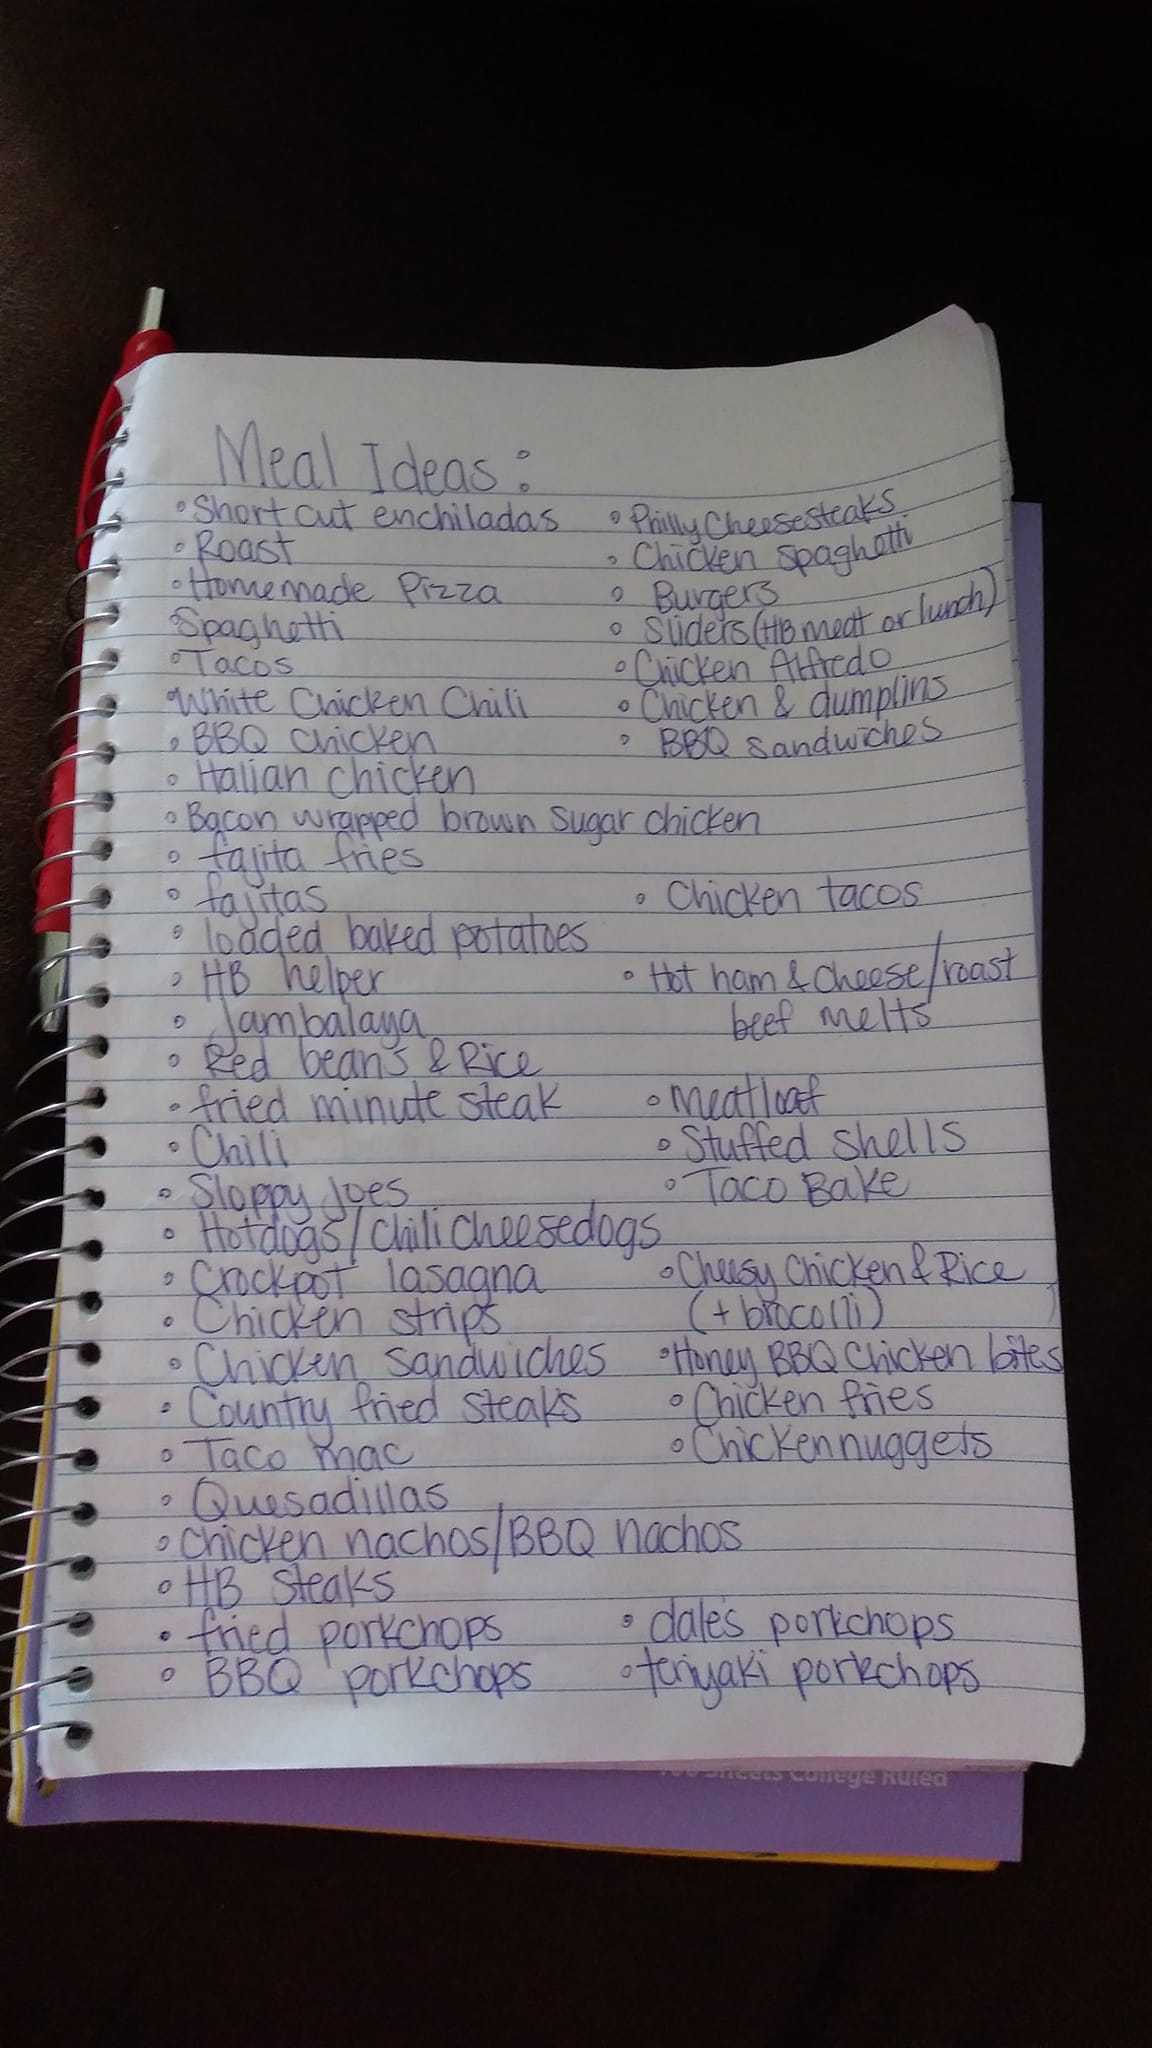 Meal Ideas:
• Short cut enchiladas
• Roast
• Homemade Pizza
• Spaghetti
• Tacos
• White Chicken Chili
• BBQ Chicken
• Italian chicken
• Bacon wrapped brown sugar chicken
• fajita fries
• fajitas
• loaded baked potatoes
• HB helper
• Jambalaya
• Red beans & Rice
• fried minute steak
• Chili
• Sloppy Joes
• Hotdogs/Chili cheesedogs
• Crockpot lasagna
• Chicken strips
• Chicken sandwiches
• Country fried steaks
• Taco mac
• Quesadillas
• chicken nachos/BBQ nachos
• HB Steaks
• fried porkchops
• BBQ porkchops
• Philly Cheesesteaks
• Chicken spaghetti
• Burgers
• Sliders (HB meat or lunch)
• Chicken Alfredo
• Chicken & dumplins
• BBQ sandwiches
• Chicken tacos
• Hot ham & cheese/roast
beef melts
• Meatloaf
• Stuffed shells
• Taco Bake
• Cheesy Chicken & Rice
(+ brocolli)
• Honey BBQ Chicken bites
• Chicken fries
• Chicken nuggets
• dale's porkchops
• teriyaki porkchops
Sheets College Ruled